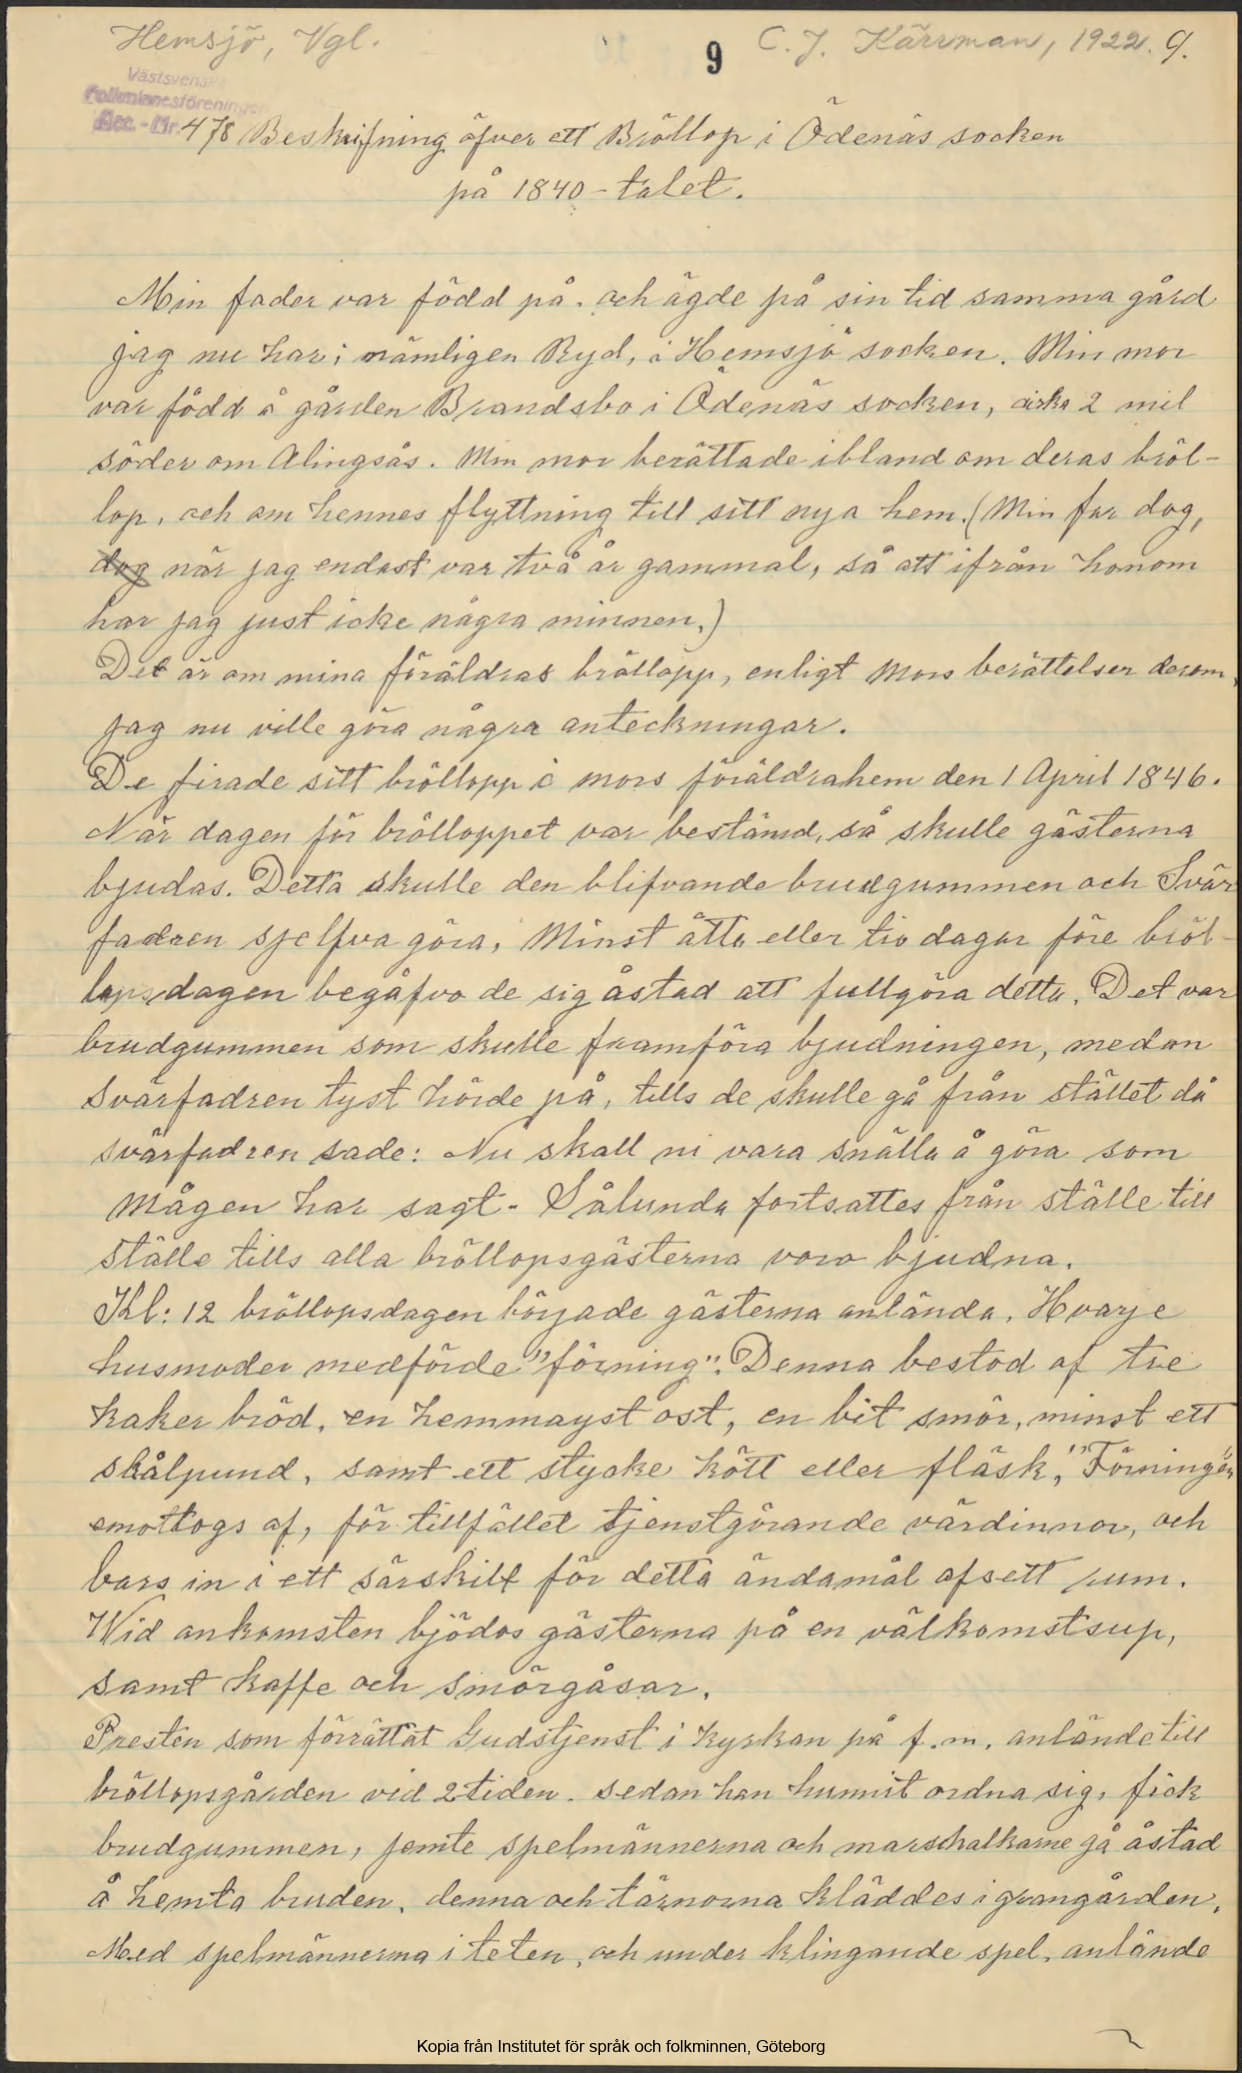 Hemsjö, Vgl.
9 C. J. Kärrman, 1922. 9.
Västsvenska
Folkminnesföreningen
Acc.-Nr. 478 Beskrifning öfver ett Bröllop i Ödenäs socken
på 1840-talet.
Min fader var född på, och ägde på sin tid samma gård
jag nu har; nämligen Ryd, i Hemsjö socken. Min mor
var född å gården Brandsbo i Ödenäs socken, cirka 2 mil
söder om Alingsås. Min mor berättade ibland om deras bröl-
lop, och om hennes flyttning till sitt nya hem. (Min far dog,
dog när jag endast var två år gammal, så att ifrån honom
har jag just icke några minnen.)
Det är om mina föräldras bröllopp, enligt Mors berättelser derom,
jag nu ville göra några anteckningar.
De firade sitt bröllopp i mors föräldrahem den 1 April 1846.
När dagen för brölloppet var bestämd, så skulle gästerna
bjudas. Detta skulle den blifvande brudgummen och Svär
fadren sjelfva göra, Minst åtta eller tio dagar före bröl-
lopsdagen begåfvo de sig åstad att fullgöra detta. Det var
brudgummen som skulle framföra bjudningen, medan
Svärfadren tyst hörde på, tills de skulle gå från stället då
svärfadren sade: Nu skall ni vara snälla å göra som
Mågen har sagt. Sålunda fortsattes från ställe till
ställe tills alla bröllopsgästerna voro bjudna.
Kl: 12 bröllopsdagen började gästerna anlända. Hvarje
husmoder medförde "förning". Denna bestod af tre
kaker bröd, en hemmayst ost, en bit smör, minst ett
skålpund, samt ett stycke kött eller fläsk, "Förningen"
emottogs af, för tillfället tjenstgörande värdinnor, och
bars in i ett särskilt för detta ändamål afsett rum.
Wid ankomsten bjödos gästerna på en välkomstsup,
samt kaffe och smörgåsar.
Presten som förrättat Gudstjenst i kyrkan på f.m. anlände till
bröllopsgården vid 2 tiden. Sedan han hunnit ordna sig, fick
brudgummen, jemte spelmännerna och marschalkarne gå åstad
å hemta bruden, denna och tärnorna kläddes i grangården,
Med spelmännerna i teten, och under klingande spel, anlände
Kopia från Institutet för språk och folkminnen, Göteborg